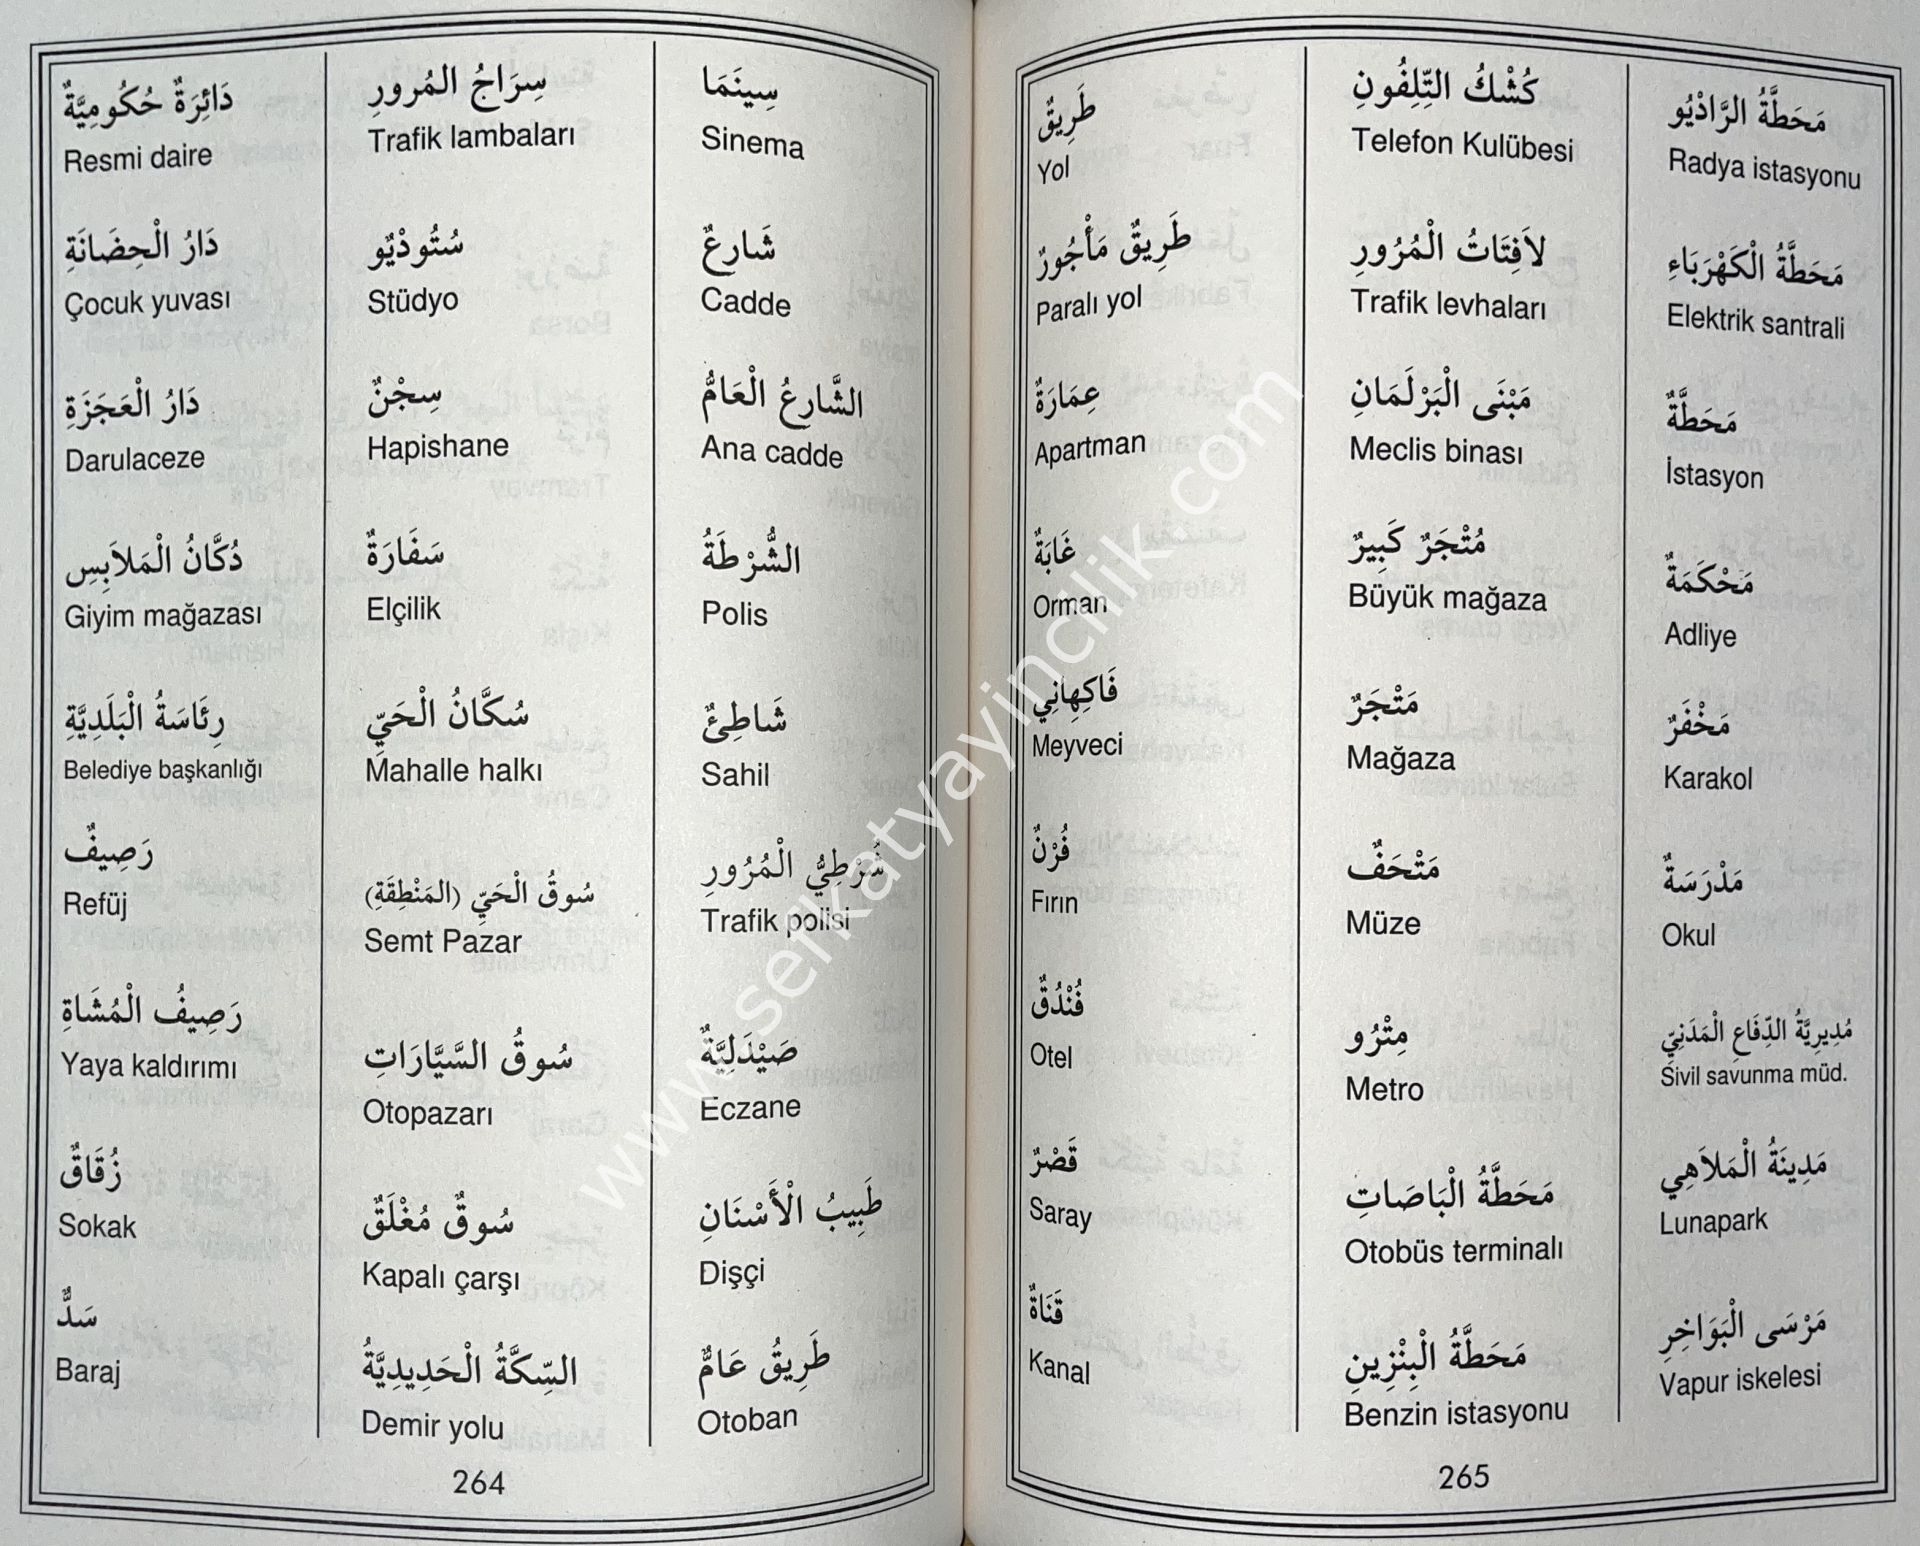 دَائِرَةٌ حُكُومِيَّةٌ
Resmi daire
دَارُ الْحِضَانَةِ
Çocuk yuvası
دَارُ الْعَجَزَةِ
Darulaceze
دُكَّانُ الْمَلاَبِسِ
Giyim mağazası
رِئَاسَةُ الْبَلَدِيَّةِ
Belediye başkanlığı
رَصِيفٌ
Refüj
رَصِيفُ الْمُشَاةِ
Yaya kaldırımı
زُقَاقٌ
Sokak
سَدٌّ
Baraj
سِرَاجُ المُرورِ
Trafik lambaları
سُتُودْيُو
Stüdyo
سِجْنٌ
Hapishane
سَفَارَةٌ
Elçilik
سُكَّانُ الْحَيِّ
Mahalle halkı
سُوقُ الْحَيِّ (المَنْطِقَةِ)
Semt Pazar
سُوقُ السَّيَّارَاتِ
Otopazarı
سُوقٌ مُغْلَقٌ
Kapalı çarşı
السِّكَّةُ الْحَدِيدِيَّةُ
Demir yolu
سِينَمَا
Sinema
شَارِعٌ
Cadde
الشَّارِعُ الْعَامُّ
Ana cadde
الشُّرْطَةُ
Polis
شَاطِئٌ
Sahil
شُرْطِيُّ الْمُرُورِ
Trafik polisi
صَيْدَلِيَّةٌ
Eczane
طَبِيبُ الْأَسْنَانِ
Dişçi
طَرِيقٌ عَامٌّ
Otoban
264
طَرِيقٌ
Yol
طَرِيقٌ مَأْجُورٌ
Paralı yol
عِمَارَةٌ
Apartman
غَابَةٌ
Orman
فَاكِهِانِي
Meyveci
فُرْنٌ
Fırın
فُنْدُقٌ
Otel
قَصْرٌ
Saray
قَنَاةٌ
Kanal
كُشْكُ التِّلِفُونِ
Telefon Kulübesi
لاَفِتَاتُ الْمُرُورِ
Trafik levhaları
مَبْنَى الْبَرْلَمَانِ
Meclis binası
مُتْجَرٌ كَبِيرٌ
Büyük mağaza
مَتْجَرٌ
Mağaza
مَتْحَفٌ
Müze
مِتْرُو
Metro
مَحَطَّةُ الْبَاصَاتِ
Otobüs terminalı
مَحَطَّةُ الْبِنْزِينِ
Benzin istasyonu
مَحَطَّةُ الرَّادْيُو
Radya istasyonu
مَحَطَّةُ الْكَهْرَبَاءِ
Elektrik santrali
مَحَطَّةٌ
İstasyon
مَحْكَمَةٌ
Adliye
مَخْفَرٌ
Karakol
مَدْرَسَةٌ
Okul
مُدِيرِيَّةُ الدِّفَاعِ الْمَدَنِيِّ
Sivil savunma müd.
مَدِينَةُ الْمَلاَهِي
Lunapark
مَرْسَى الْبَوَاخِرِ
Vapur iskelesi
265
www.serkatyayincilik.com